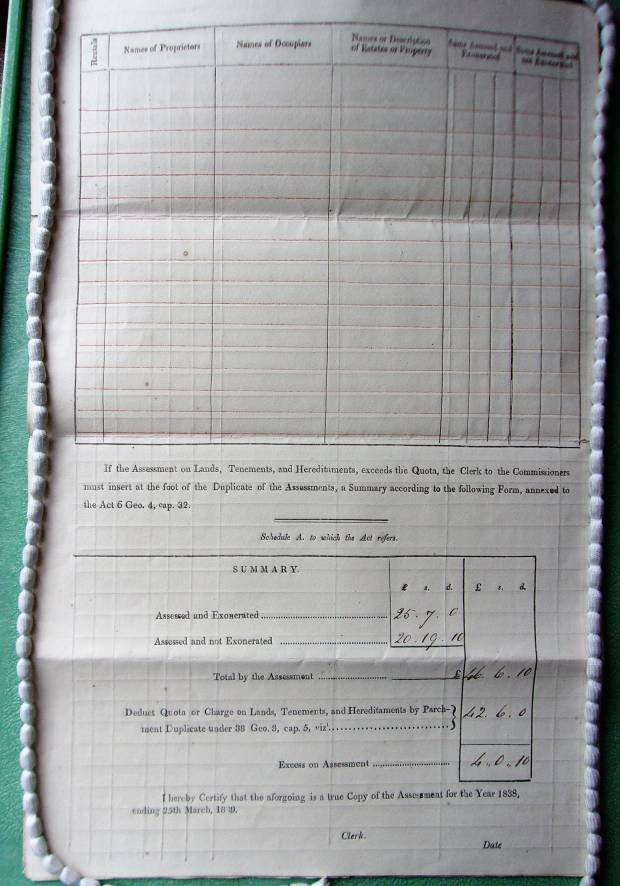 Rentals
Names of Proprietors
Names of Occupiers
Names or Description
of Estates or Property
Sums Assessed and
Exonerated
Sums Assessed and
not Exonerated
If the Assessment on Lands, Tenements, and Hereditaments, exceeds the Quota, the Clerk to the Commissioners
must insert at the foot of the Duplicate of the Assessments, a Summary according to the following Form, annexed to
the Act 6 Geo. 4, cap. 32.
Schedule A. to which the Act refers.
SUMMARY.
£ s. d. £ s. d.
Assessed and Exonerated 25 . 7 . 0
Assessed and not Exonerated 20 . 19 . 10
Total by the Assessment £ 46 . 6 . 10
Deduct Quota or Charge on Lands, Tenements, and Hereditaments by Parch-
ment Duplicate under 38 Geo. 3, cap. 5, viz'. 42 . 6 . 0
Excess on Assessment 4 . 0 . 10
I hereby Certify that the aforgoing is a true Copy of the Assessment for the Year 1838,
ending 25th March, 1839.
Clerk.
Date